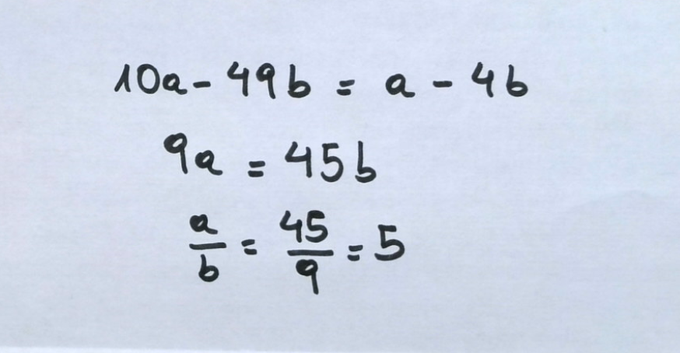 10a - 49b = a - 4b
9a = 45b
a/b = 45/9 = 5